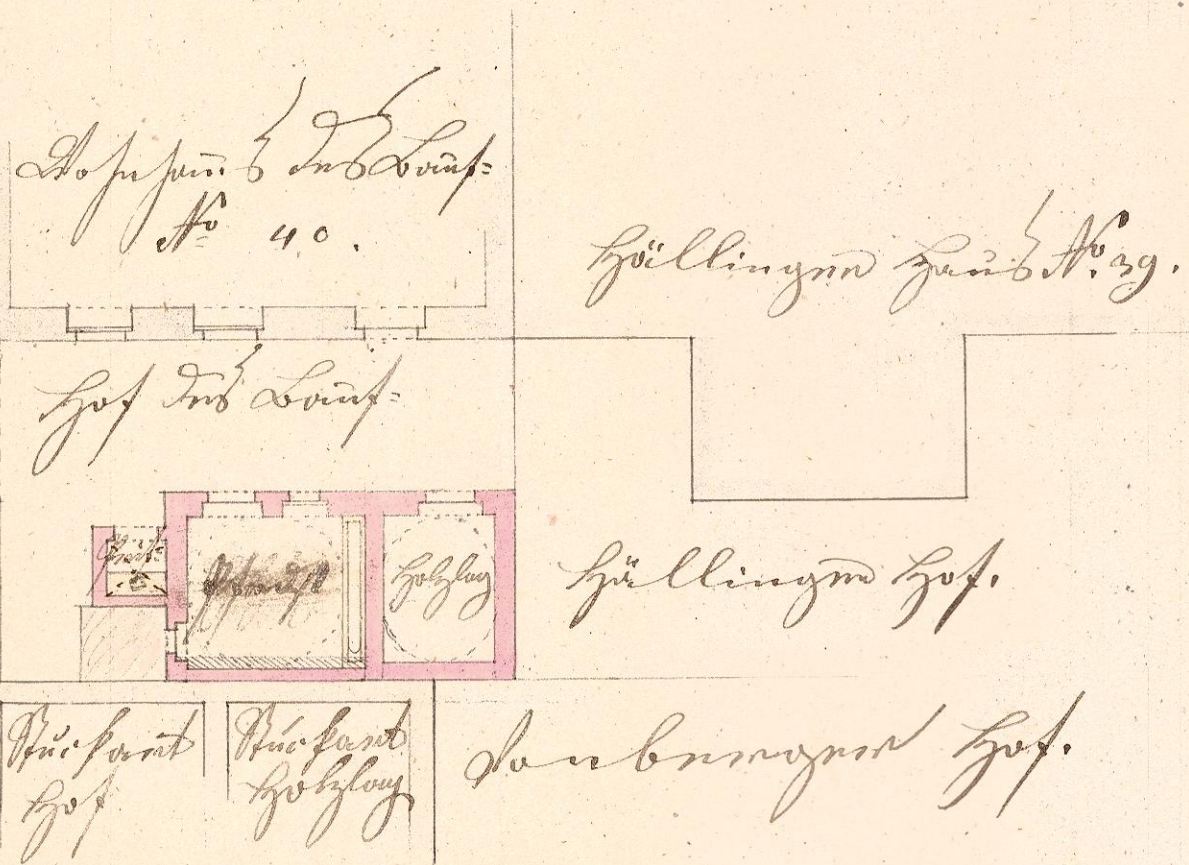 Wohnhaus des Bauf=
No 40.
Höllinger Haus No. 39.
Hof des Bauf=
Holzlag
Höllinger Hof.
Hof
Holzlag
Vonberger Hof.